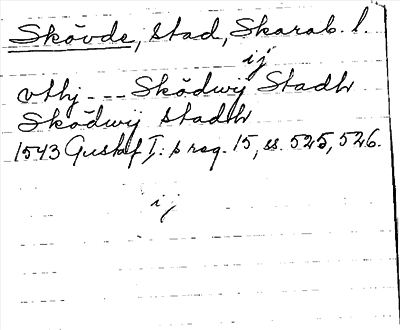 Skövde, Stad, Skarab. l.
ij
vthj --- Skǒdwij Stadh
Skǒdwij stadh
1543 Gustaf I:s reg. 15, ss. 525, 526.
ij